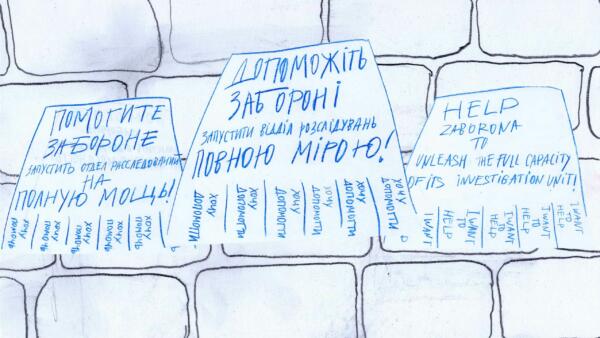 ПОМОГИТЕ
ЗАБОРОНЕ
ЗАПУСТИТЬ ОТДЕЛ РАССЛЕДОВАНИЙ
НА
ПОЛНУЮ МОЩЬ!
ХОЧУ ПОМОЧЬ
ХОЧУ ПОМОЧЬ
ХОЧУ ПОМОЧЬ
ХОЧУ ПОМОЧЬ
ХОЧУ ПОМОЧЬ
ДОПОМОЖІТЬ
ЗАБОРОНІ
ЗАПУСТИТИ ВІДДІЛ РОЗСЛІДУВАНЬ
ПОВНОЮ МІРОЮ!
ХОЧУ ДОПОМОГТИ
ХОЧУ ДОПОМОГТИ
ХОЧУ ДОПОМОГТИ
ХОЧУ ДОПОМОГТИ
ХОЧУ ДОПОМОГТИ
ХОЧУ ДОПОМОГТИ
HELP
ZABORONA
TO
UNLEASH THE FULL CAPACITY
OF ITS INVESTIGATION UNIT!
I WANT TO HELP
I WANT TO HELP
I WANT TO HELP
I WANT TO HELP
I WANT TO HELP